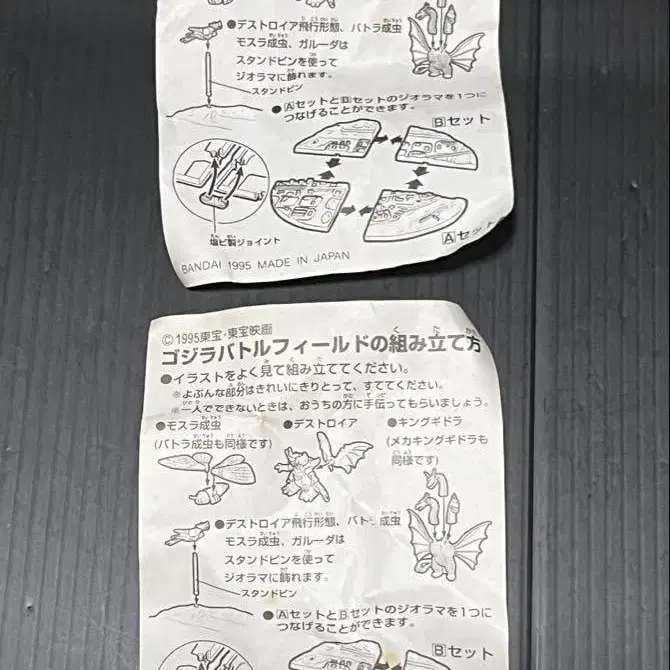 ●デストロイア飛行形態、バトラ成虫
モスラ成虫、ガルーダは
スタンドピンを使って
ジオラマに飾れます。
スタンドピン
●AセットとBセットのジオラマを1つに
つなげることができます。
Bセット
Aセット
塩ビ製ジョイント
BANDAI 1995 MADE IN JAPAN
©1995東宝・東宝映画
ゴジラバトルフィールドの組み立て方
●イラストをよく見て組み立ててください。
※よぶんな部分はきれいにきりとって、すててください。
※一人でできないときは、おうちの方に手伝ってもらいましょう。
●モスラ成虫
(バトラ成虫も同様です)
●デストロイア
●キングギドラ
(メカキングギドラも
同様です)
●デストロイア飛行形態、バトラ成虫
モスラ成虫、ガルーダは
スタンドピンを使って
ジオラマに飾れます。
スタンドピン
●AセットとBセットのジオラマを1つに
つなげることができます。
Bセット